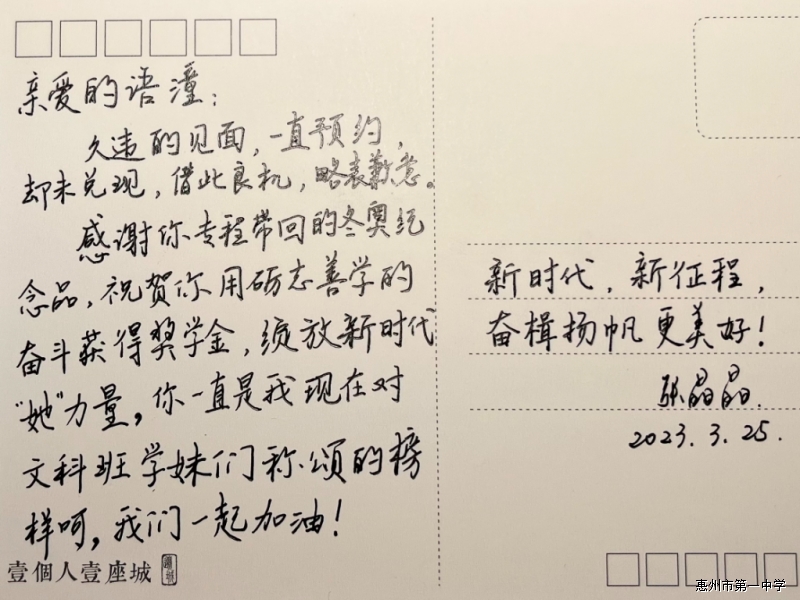 亲爱的语潼：
久违的见面，一直预约，
却未兑现，借此良机，略表歉意。
感谢你专程带回的冬奥纪
念品，祝贺你用砺志善学的
奋斗获得奖学金，绽放新时代
“她”力量，你一直是我现在对
文科班学妹们称颂的榜
样呵，我们一起加油！
壹個人壹座城
新时代，新征程，
奋楫扬帆更美好！
张晶晶.
2023.3.25.
惠州市第一中学